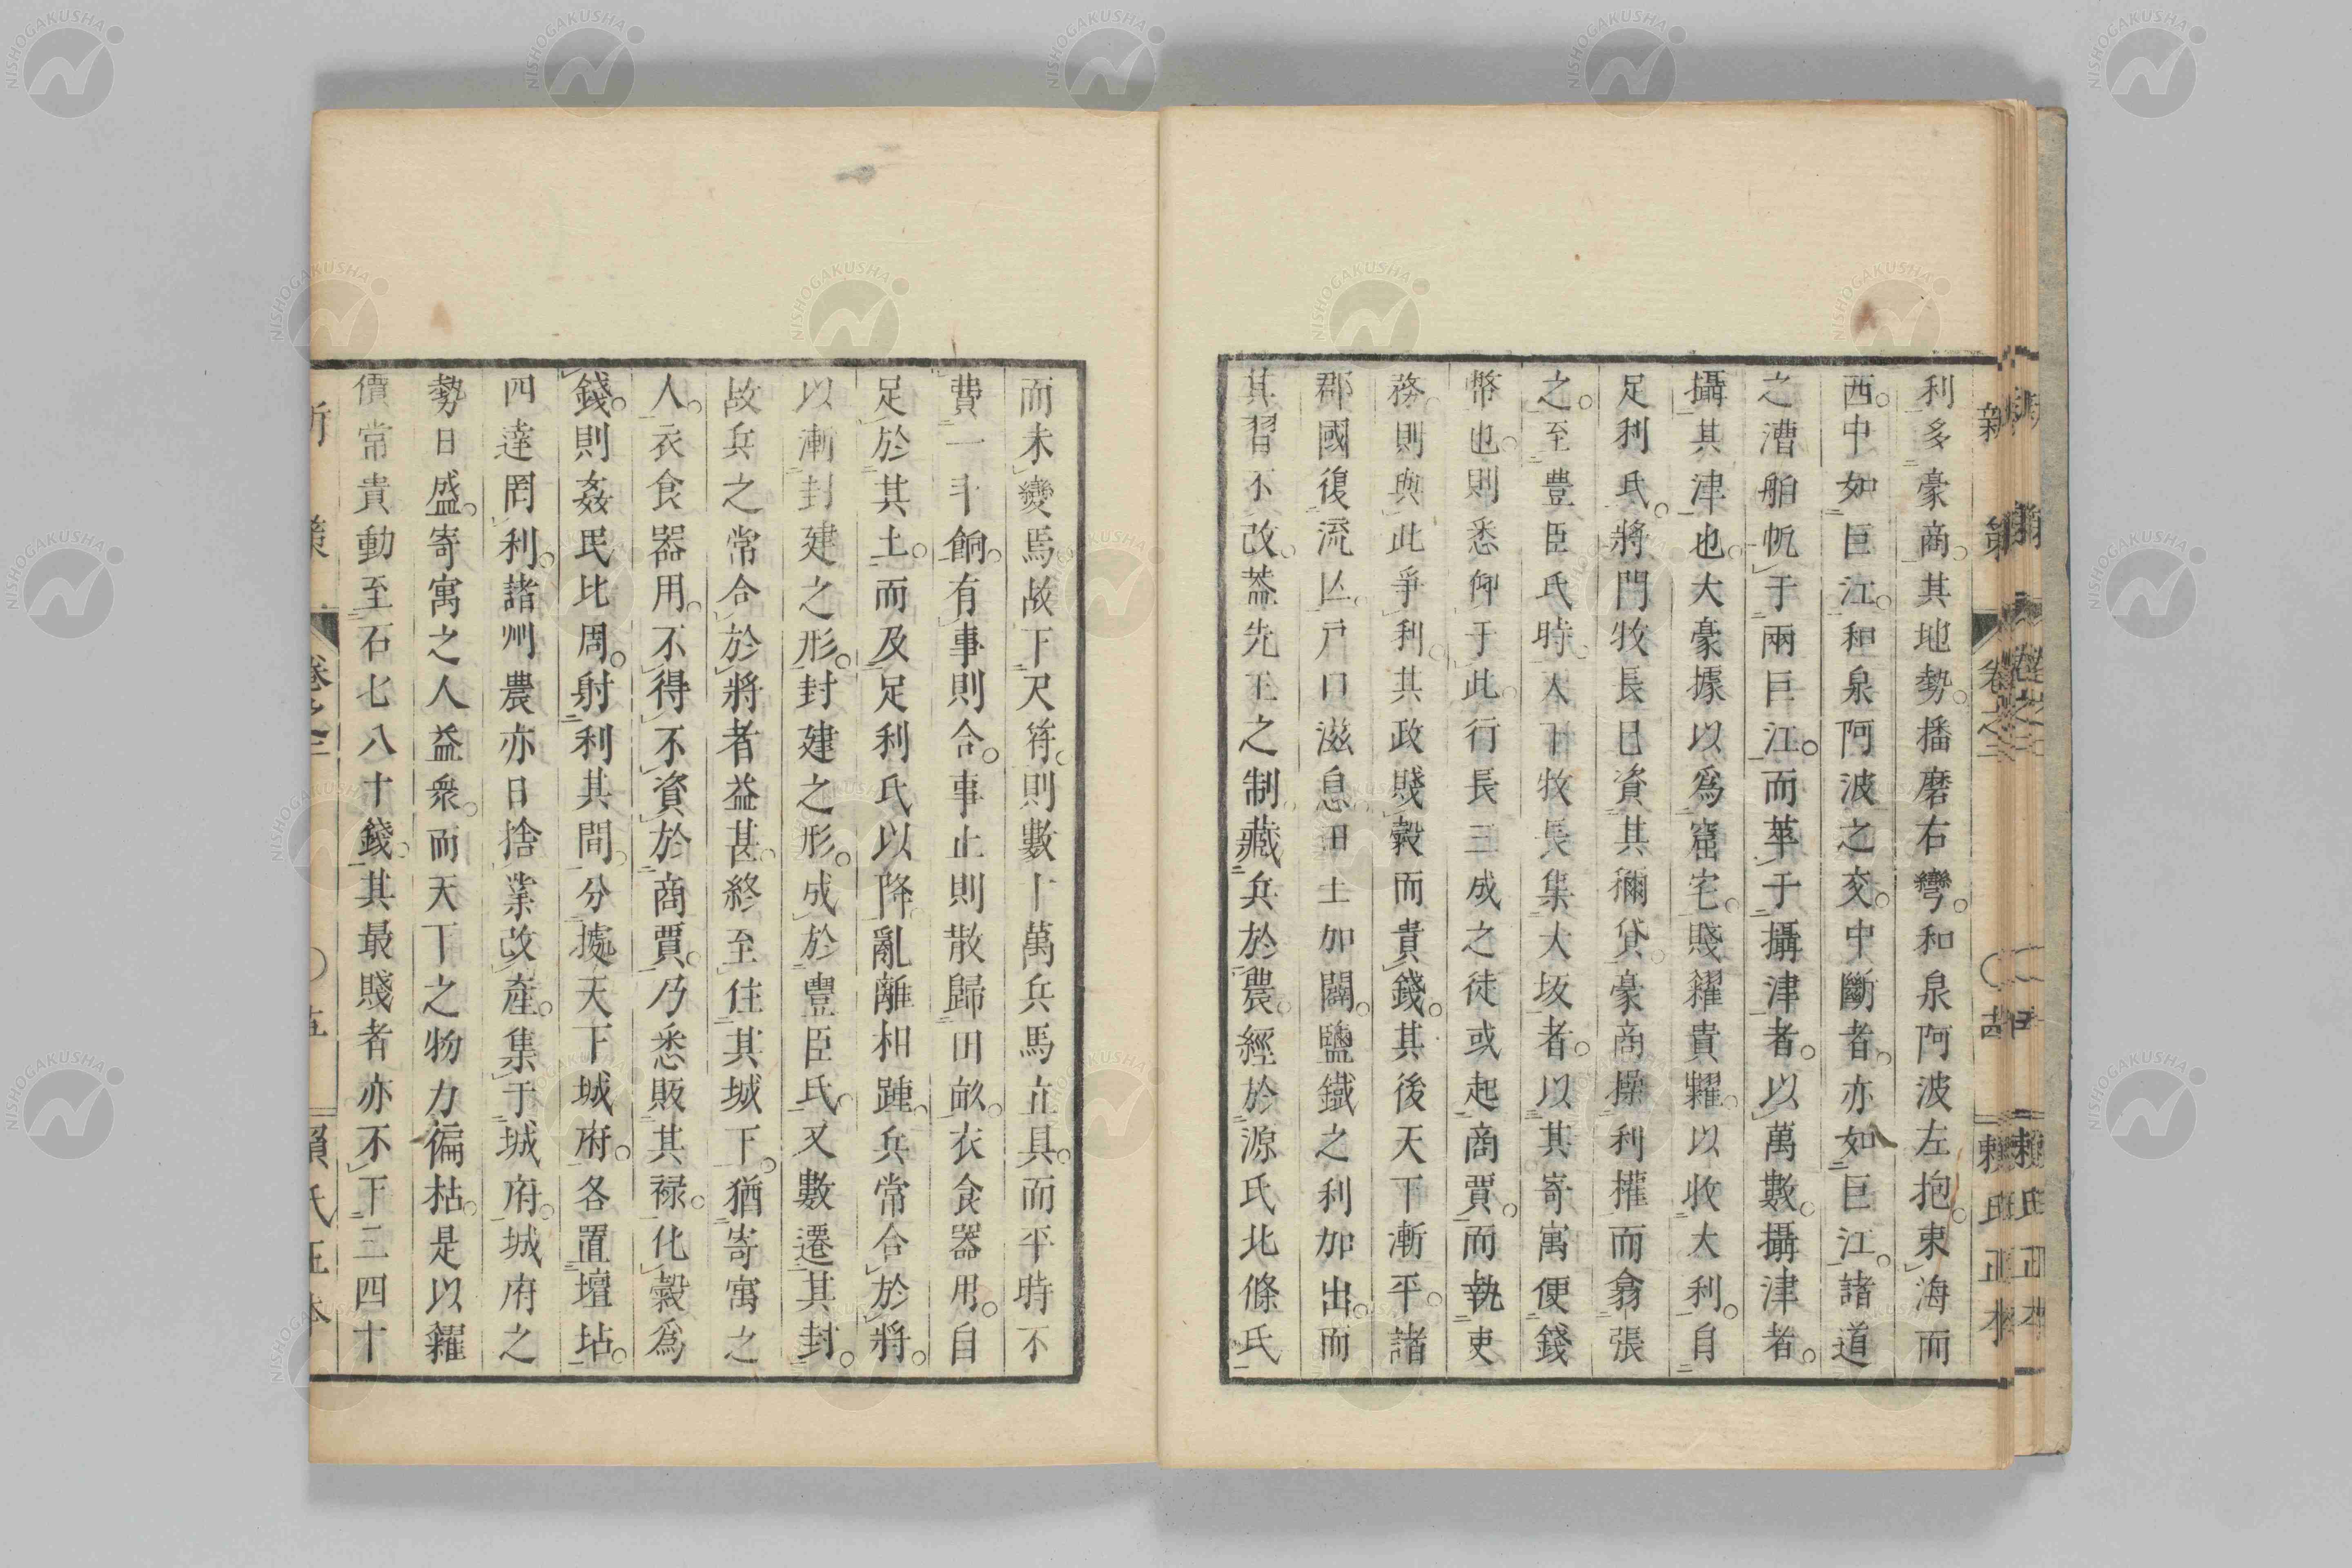 利多豪商。其地勢。播磨右彎。和泉阿波左抱。東海而
西。中如巨江。和泉阿波之交。中斷者。亦如巨江。諸道
之漕舶帆于兩巨江。而萃于攝津者。以萬數。攝津者。
攝其津也。大豪據以爲窟宅。賤糴貴糶。以收大利。自
足利氏。將門牧長已資其稱貸。豪商操利權而翕張
之。至豊臣氏時。天下牧長集大坂者。以其寄寓便錢
幣也。則悉仰于此。行長三成之徒或起商賈。而執吏
務。則與此爭利。其政賤穀而貴錢。其後天下漸平。諸
郡國復流亾。戸口滋息。田土加闢。鹽鐵之利加出。而
其習不改。葢先王之制。藏兵於農。經於源氏北條氏
而未變焉。故下尺符。則數十萬兵馬立具。而平時不
費一斗餉。有事則合。事止則散歸田畝。衣食器用。自
足於其土。而及足利氏以降。亂離相踵。兵常合於將。
以漸封建之形。封建之形。成於豊臣氏。又數遷其封。
故兵之常合於將者益甚。終至住其城下。猶寄寓之
人。衣食器用。不得不資於商賈。乃悉販其禄。化穀爲
錢。則姦民比周。射利其間。分據天下城府。各置壇坫。
四達罔利。諸州農亦日捨業改產。集于城府。城府之
勢日盛。寄寓之人益衆。而天下之物力偏枯。是以糴
價常貴動至石七八十錢。其最賤者亦不下三四十
新 策 卷之三 〇五 賴氏正本